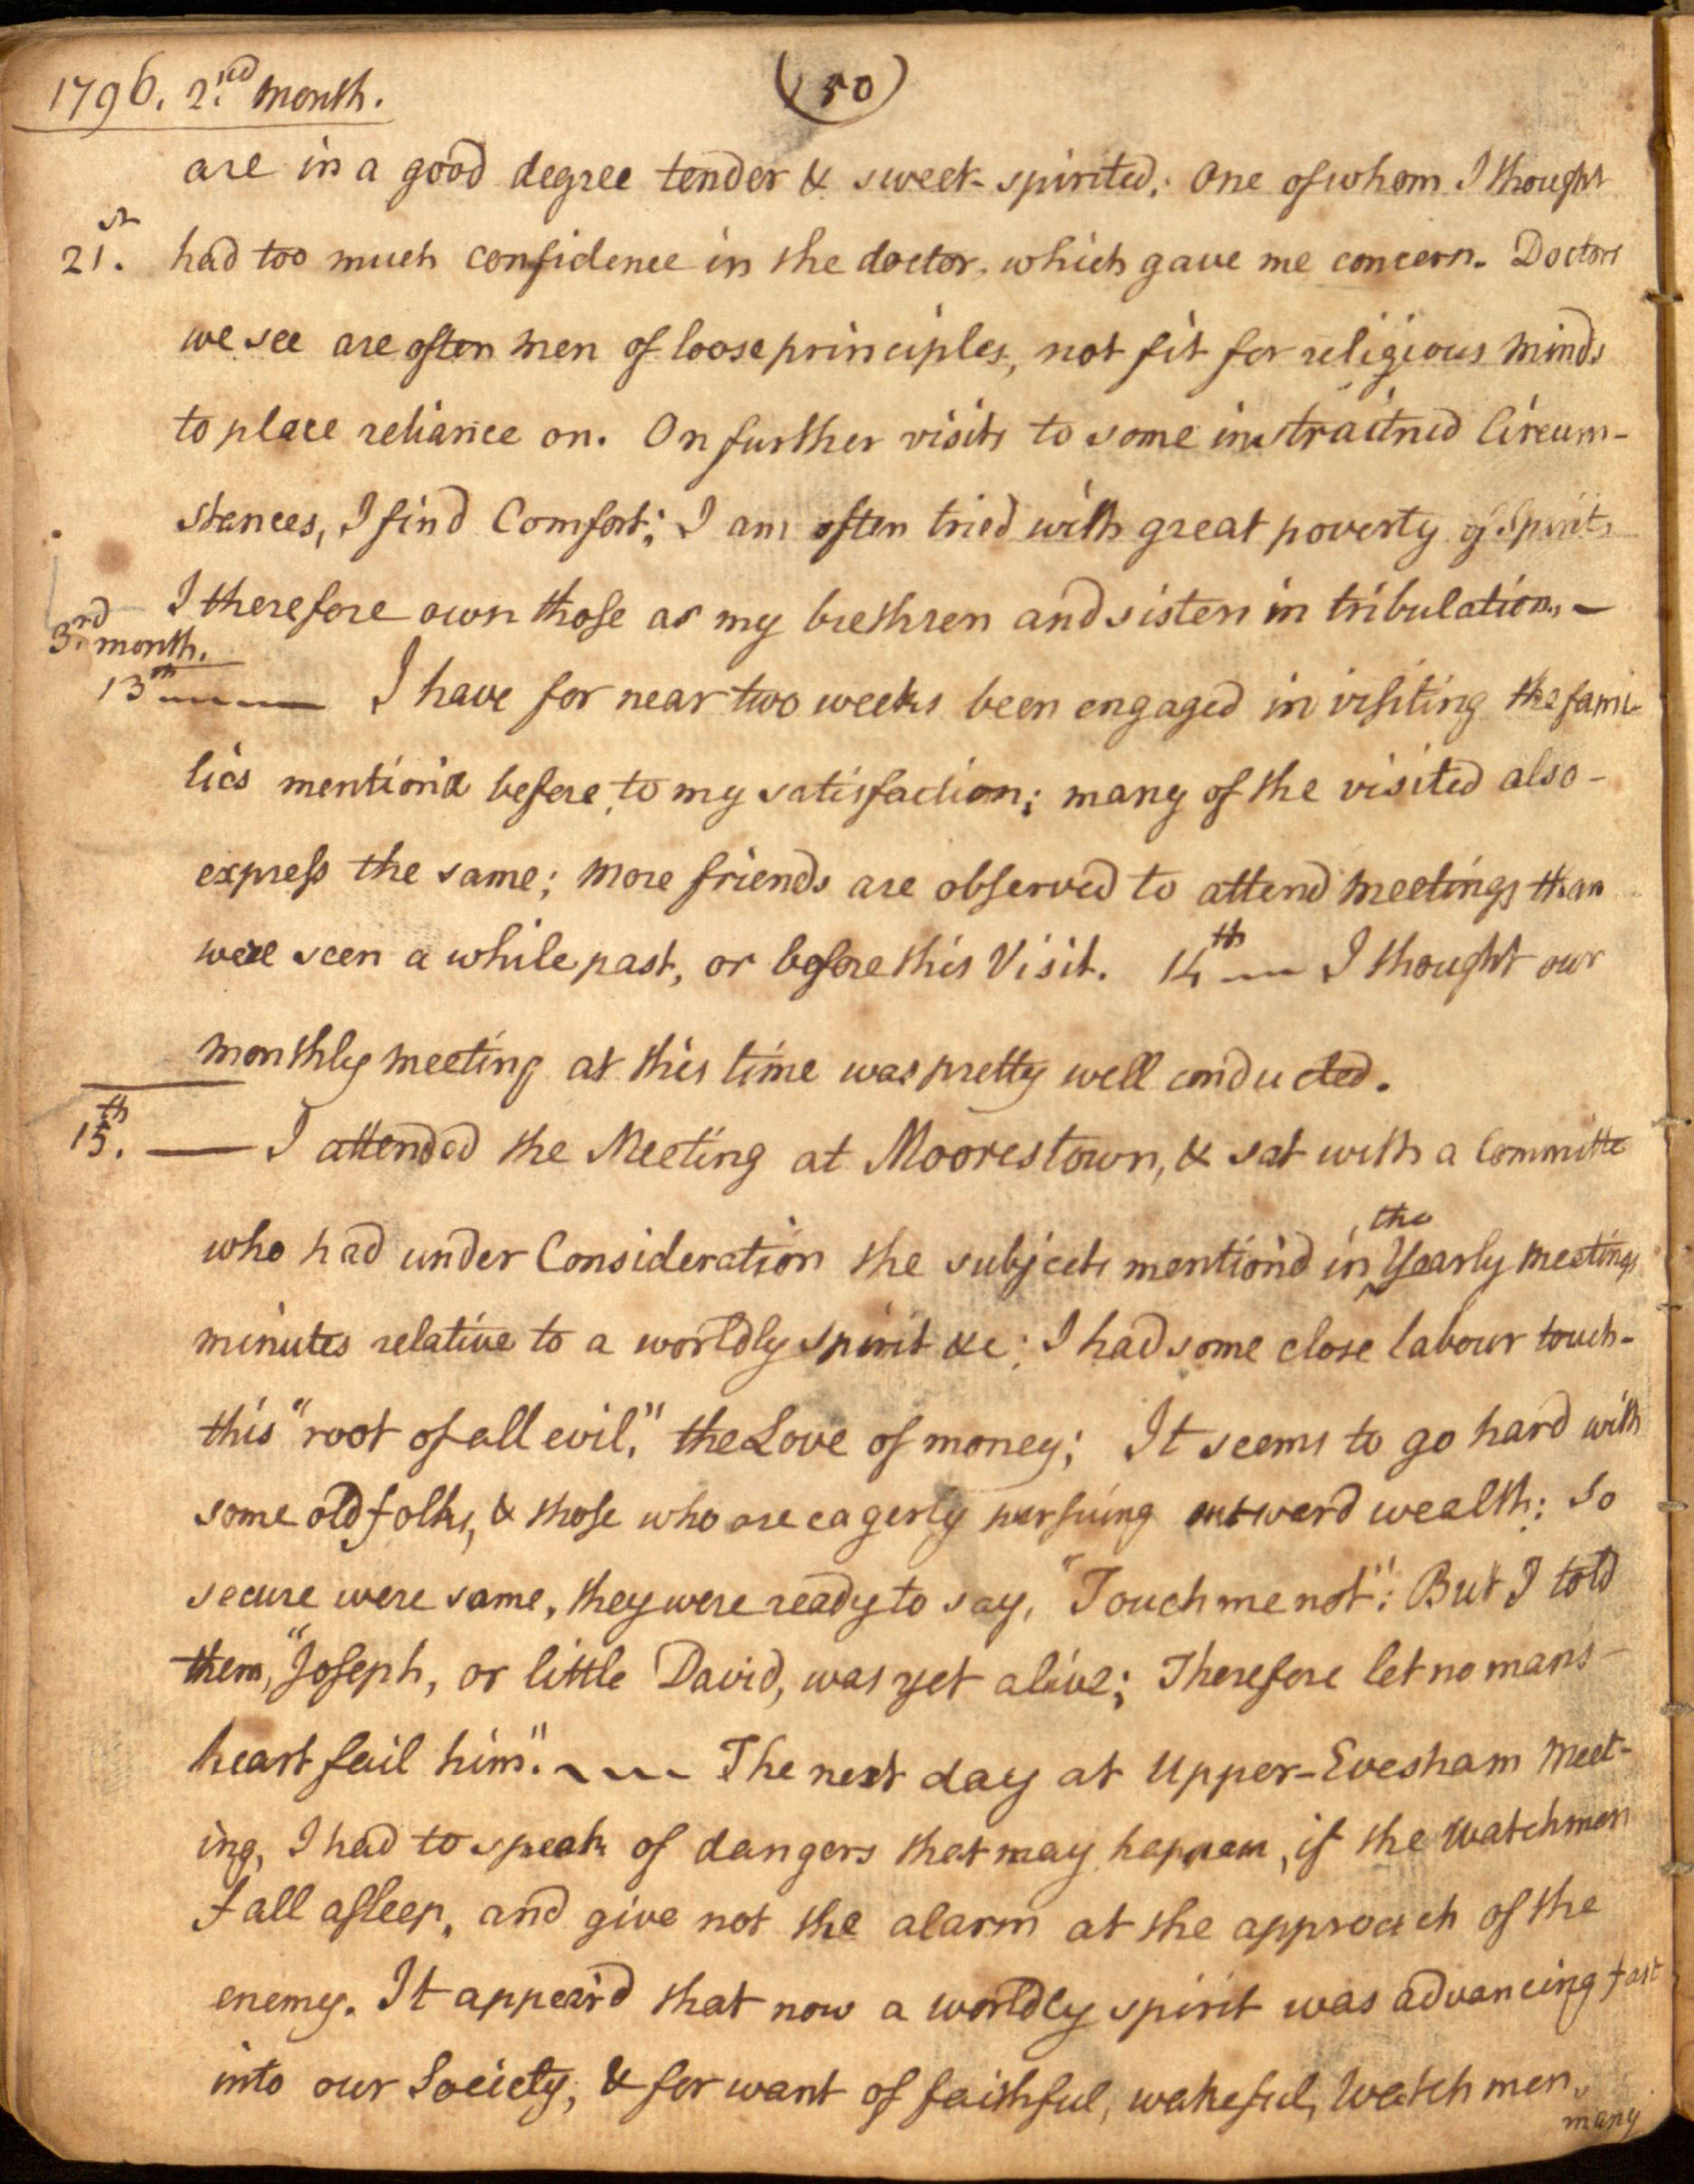 1796. 2nd month.
(50)
are in a good degree tender & sweet-spirited; One of whom I thought
21st. had too much confidence in the doctor, which gave me concern. Doctors
we see are often men of loose principles, not fit for religious minds
to place reliance on. On further visits to some in straitned Circum-
stances, I find Comfort; I am often tried with great poverty of Spirit,
I therefore own those as my brethren and sisters in tribulation. —
3rd month.
13th —— I have for near two weeks been engaged in visiting the fami-
lies mention'd before, to my satisfaction; many of the visited also -
express the same; more friends are observed to attend meetings than
were seen a while past, or before this Visit. 14th — I thought our
monthly meeting at this time was pretty well conducted.
15th. — I attended the Meeting at Moorestown, & sat with a Committe
who had under Consideration the subjects mention'd in ^the Yearly meetings
minutes relative to a worldly spirit &c; I had some close labour touch-
this "root of all evil," the Love of money; It seems to go hard with
some old folks, & those who are eagerly pursuing outward wealth: So
secure were some, they were ready to say, "Touch me not": But I told
them, "Joseph, or little David, was yet alive; Therefore let no mans -
heart fail him". ~~~ The next day at Upper-Evesham Meet-
ing, I had to speak of dangers that may happen, if the Watchmen
fall asleep, and give not the alarm at the approach of the
enemy. It appear'd that now a worldly spirit was advancing fast
into our Society, & for want of faithful, wakeful, Watchmen,
many